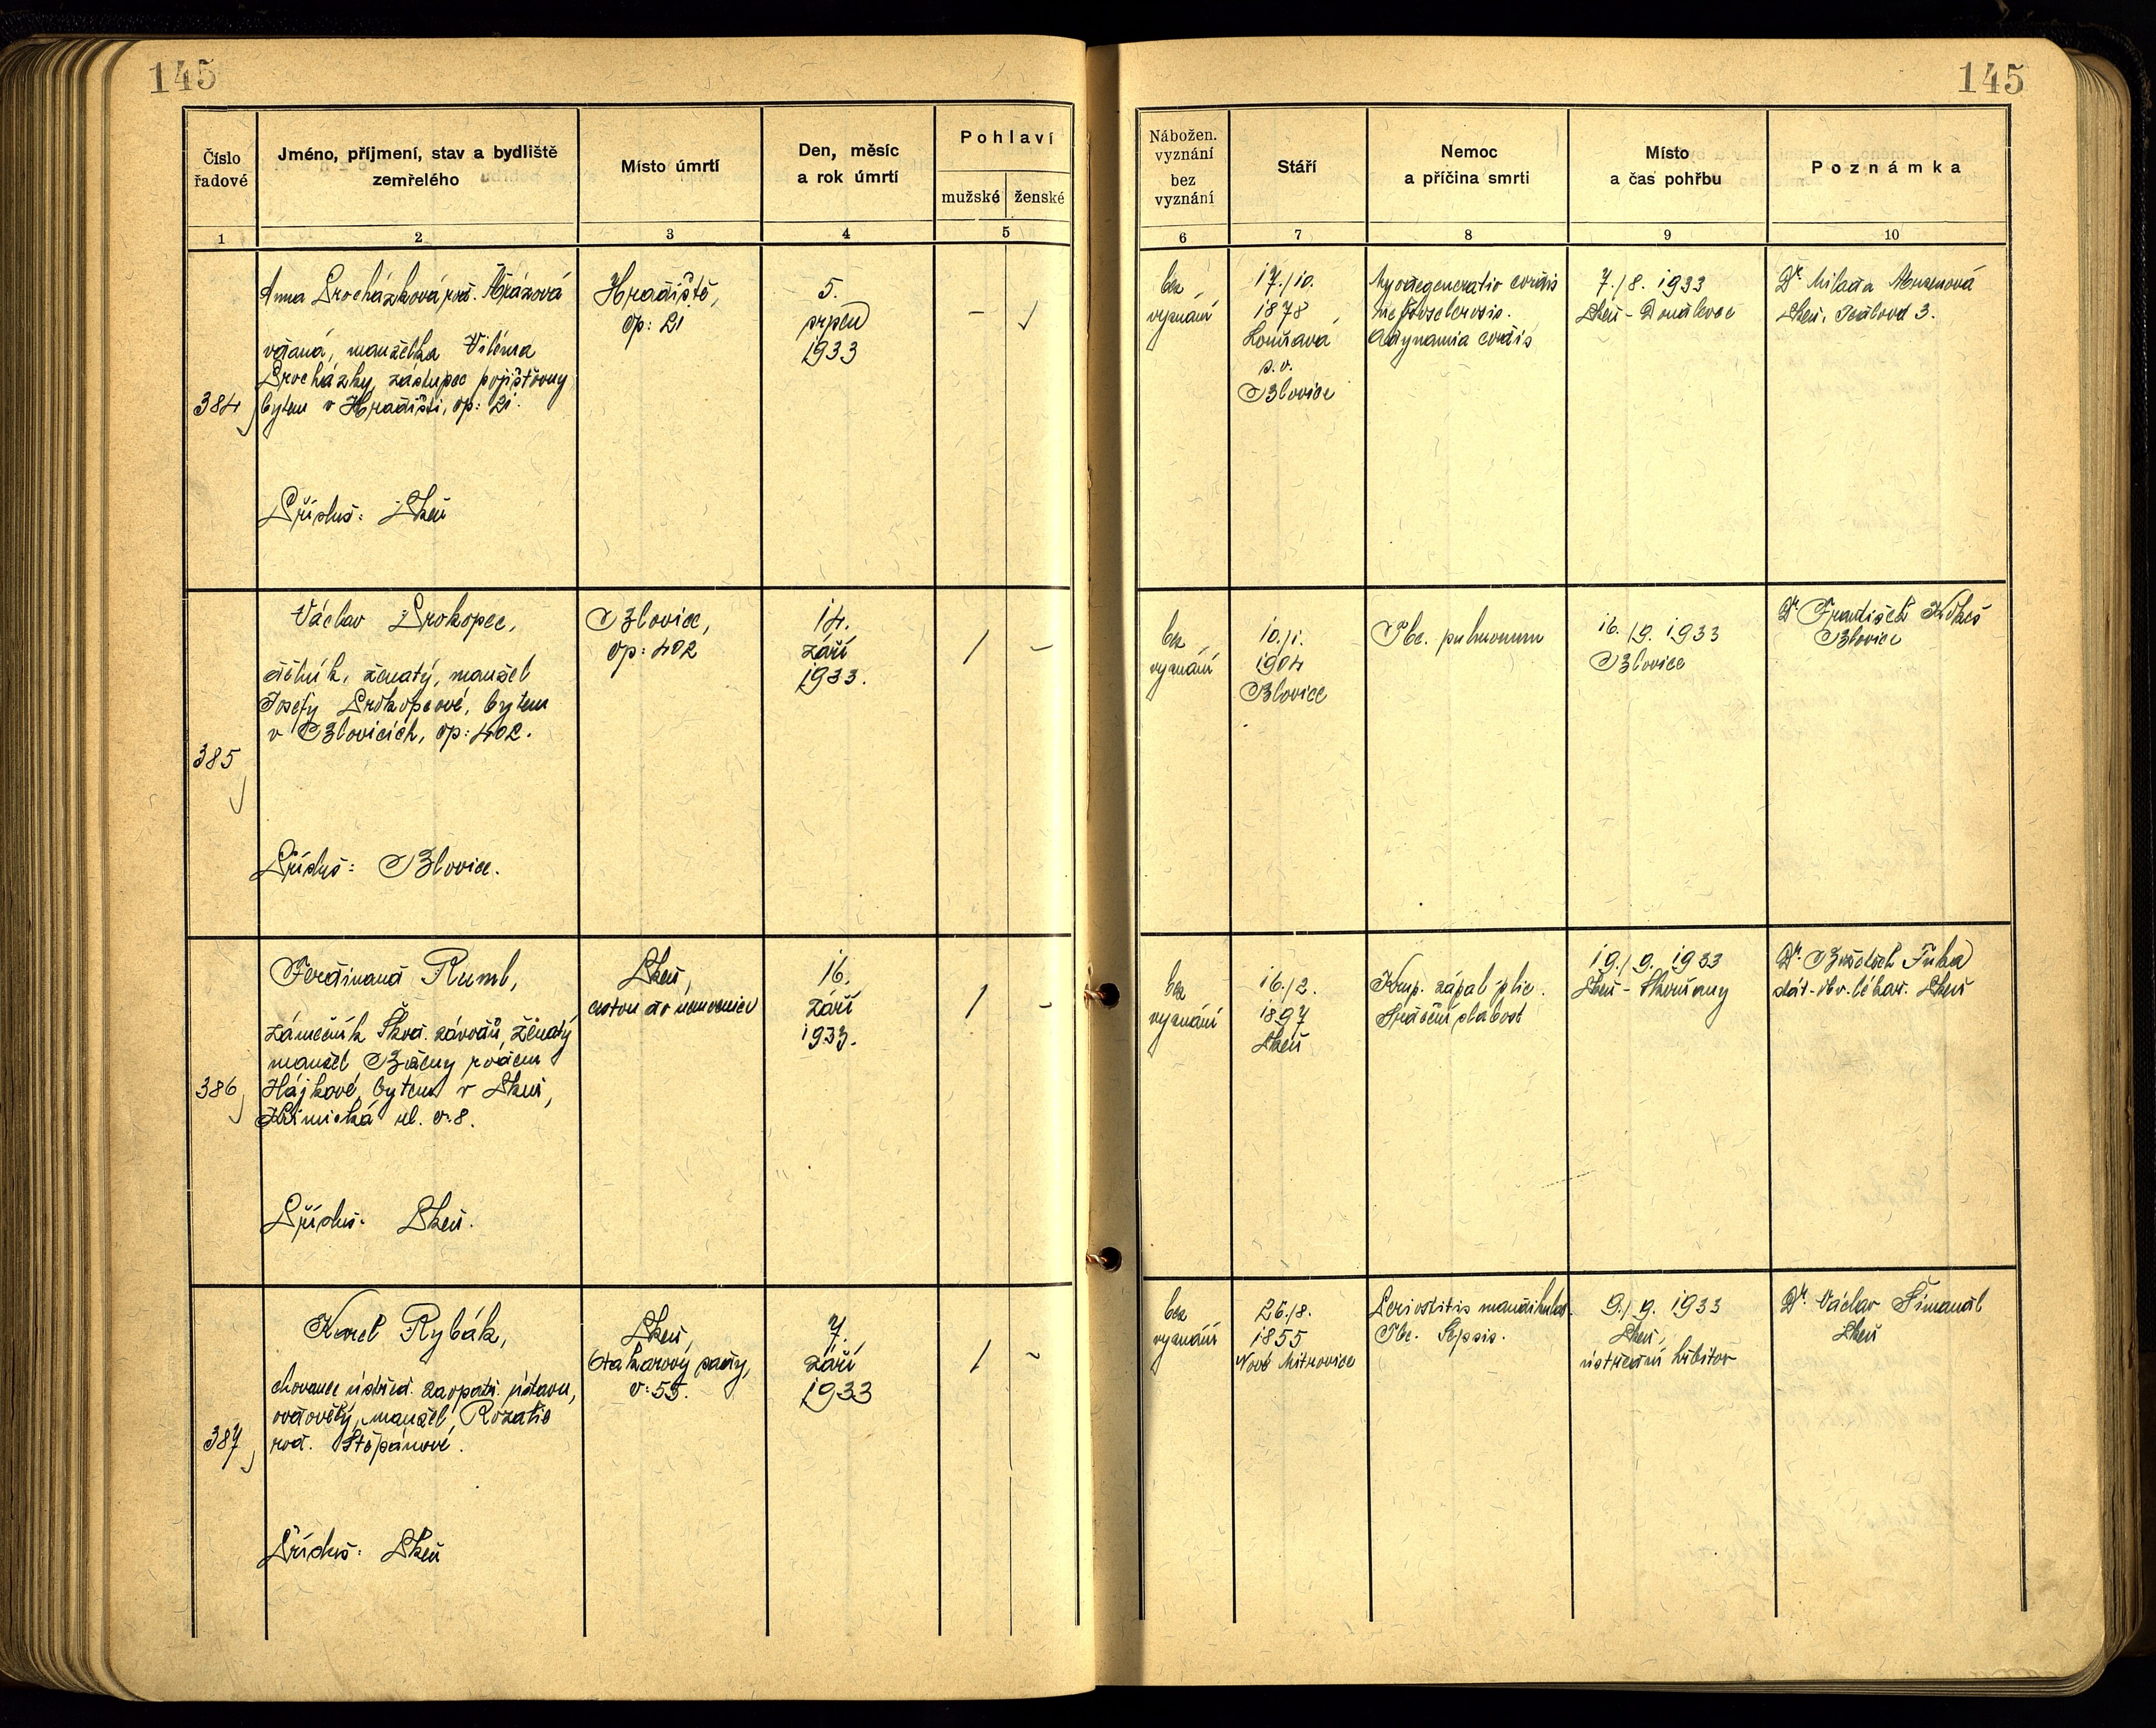 145
145
Číslo
řadové
Jméno, příjmení, stav a bydliště
zemřelého
Místo úmrtí
Den, měsíc
a rok úmrtí
Pohlaví
mužské
ženské
Nábožen.
vyznání
bez
vyznání
Stáří
Nemoc
a příčina smrti
Místo
a čas pohřbu
Poznámka
1
2
3
4
5
6
7
8
9
10
384
Anna Procházková roz.
vdaná, manželka Viléma
Procházky, zástupce pojišťovny
bytem v Hradišti, čp: 21.
Přísluš: Plzeň
Hradiště,
čp: 21
5.
srpen
1933
-
/
bez
vyznání
17./10.
1878
Louňavá
s. o.
Blovice
Myodegeneratio cordis
Nefrosclerosis.
Adynamia cordis
7./8. 1933
Plzeň - Doudlevce
Dr. Milada
Plzeň, 3.
385
Václav Prokopec,
dělník, ženatý, manžel
Josefy Prokopcové, bytem
v Blovicích, čp: 402.
Přísluš: Blovice.
Blovice,
čp: 402
14.
září
1933.
/
-
bez
vyznání
10./1.
1904
Blovice
Tbc. pulmonum
16./9. 1933
Blovice
Dr František
Blovice
386
Ferdinand Ruml,
zámečník Škod. závodů, ženatý
manžel Boženy rozen
Hájkové, bytem v Plzni,
Křimická ul. č. 8.
Přísluš: Plzeň.
Plzeň,
cestou do nemocnice
16.
září
1933.
/
-
bez
vyznání
16./2.
1897
Plzeň
Krup. zápal plic.
Srdeční slabost
19./9. 1933
Plzeň - Skvrňany
Dr. Bedřich Fuka
stát. obv. lékař. Plzeň
387
Karel Rybák,
chovanec ústřed. zaopatř. ústavu,
ovdovělý, manžel Rozalie
roz. Štěpánové.
Přísluš: Plzeň
Plzeň,
Otakarovy sady,
č: 55.
7.
září
1933
/
-
bez
vyznání
26./8.
1855
Nové Mitrovice
Periostitis mandibulae.
Tbc. Sepsis.
9./9. 1933
Plzeň,
ústřední hřbitov
Dr. Václav Šimandl
Plzeň